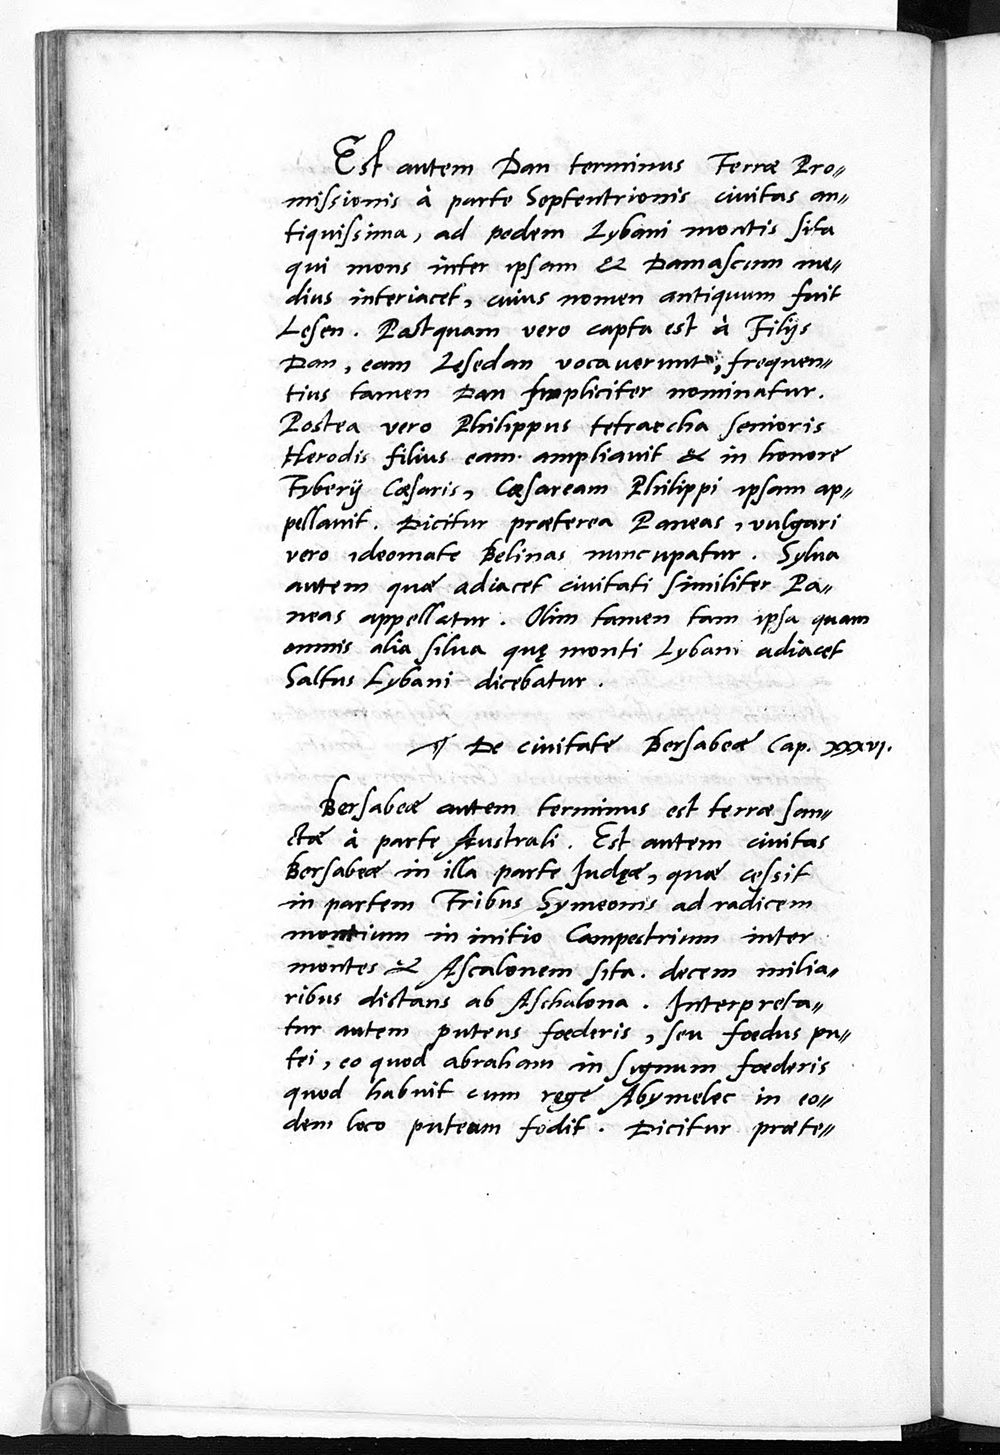 Est autem Dan terminus Terræ Pro„
missionis à parte Septentrionis civitas an„
tiquissima, ad pedem Lybani montis sita
qui mons inter ipsam & Damascum me„
dius interiacet, cuius nomen antiquum fuit
Lesen. Postquam vero capta est à Filijs
Dan, eam Lesedan vocaverunt, frequen„
tius tamen Dan simpliciter nominatur.
Postea vero Philippus tetraecha senioris
Herodis filius eam ampliavit & in honore
Tyberij Cæsaris, Cæsaream Philippi ipsam ap„
pellavit. Dicitur præterea Paneas, vulgari
vero ideomate Belinas nuncupatur. Sylva
autem quæ adiacet civitati similiter Pa„
neas appellatur. Olim tamen tam ipsa quam
omnis alia silva quę monti Lybani adiacet
Saltus Lybani dicebatur.
¶ De civitate Bersabeæ Cap. xxxvi.
Bersabeæ autem terminus est terræ san„
ctæ à parte Australi. Est autem civitas
Bersabeæ in illa parte Judęæ, quæ cessit
in partem Tribus Symeonis ad radicem
montium in initio Campestrium inter
montes & Ascalonem sita. decem milia„
ribus distans ab Aschalona. Interpreta„
tur autem puteus fœderis, seu fœdus pu„
tei, eo quod abraham in sygnum fœderis
quod habuit cum rege Abymelec in eo„
dem loco puteum fodit. Dicitur præte„